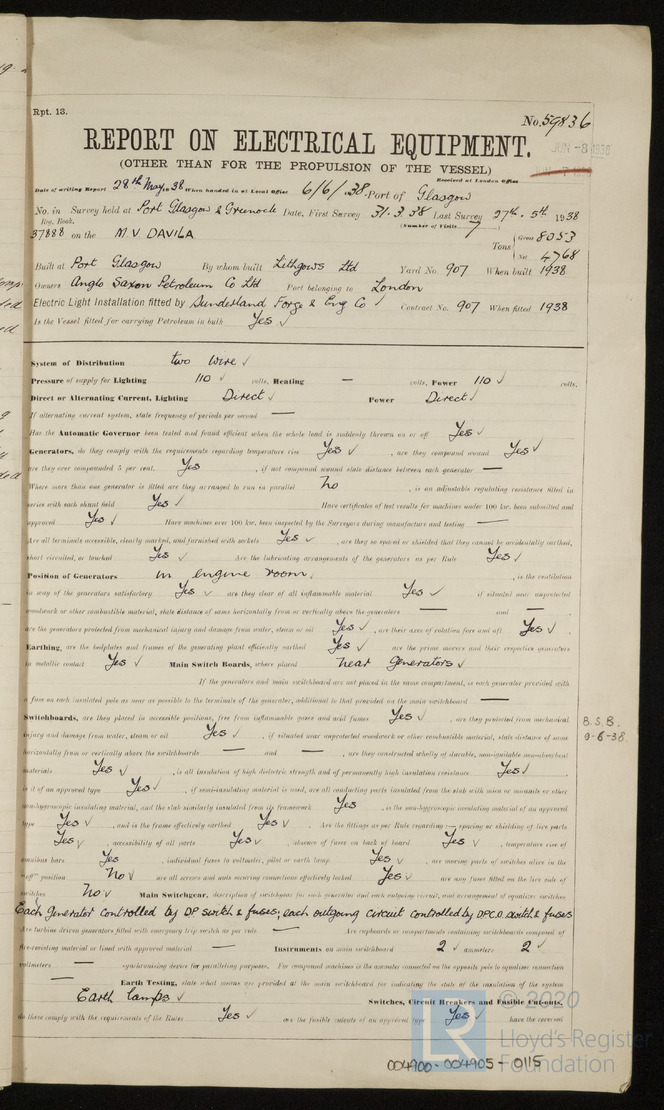 Rpt. 13.
No. 59836
REPORT ON ELECTRICAL EQUIPMENT.
JUN -8 1938
(OTHER THAN FOR THE PROPULSION OF THE VESSEL)
Received at London Office
Date of writing Report 28th May 38 When handed in at Local Office 6/6/38 Port of Glasgow
No. in Survey held at Port Glasgow & Greenock Date, First Survey 31.3.38 Last Survey 27th. 5th. 1938
Reg. Book. (Number of Visits 7
37888 on the M.V DAVILA Tons Gross 8053
Net 4768
Built at Port Glasgow By whom built Lithgows Ltd Yard No. 907 When built 1938
Owners Anglo Saxon Petroleum Co Ltd Port belonging to London
Electric Light Installation fitted by Sunderland Forge & Eng Co Contract No. 907 When fitted 1938
Is the Vessel fitted for carrying Petroleum in bulk Yes ✓
System of Distribution two wire ✓
Pressure of supply for Lighting 110 ✓ volts, Heating — volts, Power 110 ✓ volts.
Direct or Alternating Current, Lighting Direct ✓ Power Direct ✓
If alternating current system, state frequency of periods per second —
Has the Automatic Governor been tested and found efficient when the whole load is suddenly thrown on or off Yes ✓
Generators, do they comply with the requirements regarding temperature rise Yes ✓, are they compound wound Yes ✓
are they over compounded 5 per cent. Yes, if not compound wound state distance between each generator —
Where more than one generator is fitted are they arranged to run in parallel No, is an adjustable regulating resistance fitted in
series with each shunt field Yes ✓ Have certificates of test results for machines under 100 kw. been submitted and
approved Yes ✓ Have machines over 100 kw. been inspected by the Surveyors during manufacture and testing —
Are all terminals accessible, clearly marked, and furnished with sockets Yes ✓, are they so spaced or shielded that they cannot be accidentally earthed,
short circuited, or touched Yes ✓ Are the lubricating arrangements of the generators as per Rule Yes ✓
Position of Generators in engine room ✓, is the ventilation
in way of the generators satisfactory Yes ✓ are they clear of all inflammable material Yes ✓ if situated near unprotected
woodwork or other combustible material, state distance of same horizontally from or vertically above the generators — and —,
are the generators protected from mechanical injury and damage from water, steam or oil Yes ✓, are their axes of rotation fore and aft Yes ✓
Earthing, are the bedplates and frames of the generating plant efficiently earthed Yes ✓ are the prime movers and their respective generators
in metallic contact Yes ✓ Main Switch Boards, where placed near generators ✓
If the generators and main switchboard are not placed in the same compartment, is each generator provided with
a fuse on each insulated pole as near as possible to the terminals of the generator, additional to that provided on the main switchboard —
Switchboards, are they placed in accessible positions, free from inflammable gases and acid fumes Yes ✓, are they protected from mechanical
injury and damage from water, steam or oil Yes ✓, if situated near unprotected woodwork or other combustible material, state distance of same
B.S.B.
9-6-38.
horizontally from or vertically above the switchboards — and —, are they constructed wholly of durable, non-ignitable non-absorbent
materials Yes ✓, is all insulation of high dielectric strength and of permanently high insulation resistance Yes ✓
is it of an approved type Yes ✓, if semi-insulating material is used, are all conducting parts insulated from the slab with mica or micanite or other
non-hygroscopic insulating material, and the slab similarly insulated from its framework Yes, is the non-hygroscopic insulating material of an approved
type Yes ✓, and is the frame effectively earthed Yes ✓ Are the fittings as per Rule regarding:— spacing or shielding of live parts
Yes ✓, accessibility of all parts Yes ✓, absence of fuses on back of board Yes ✓, temperature rise of
omnibus bars Yes, individual fuses to voltmeter, pilot or earth lamp Yes ✓, are moving parts of switches alive in the
"off" position No ✓ are all screws and nuts securing connections effectively locked Yes ✓ are any fuses fitted on the live side of
switches No ✓ Main Switchgear, description of switchgear for each generator and each outgoing circuit, and arrangement of equaliser switches
Each generator controlled by DP switch & fuses, each outgoing circuit controlled by DPCO switch & fuses
Are turbine driven generators fitted with emergency trip switch as per rule — Are cupboards or compartments containing switchboards composed of
fire-resisting material or lined with approved material — Instruments on main switchboard 2 ✓ ammeters 2 ✓
voltmeters — synchronising device for paralleling purposes. For compound machines is the ammeter connected on the opposite pole to equaliser connection
— Earth Testing, state what means are provided at the main switchboard for indicating the state of the insulation of the system
Earth lamps ✓ Switches, Circuit Breakers and Fusible Cut-outs,
do these comply with the requirements of the Rules Yes ✓ are the fusible cutouts of an approved type Yes ✓ have the reversed
© 2020
Lloyd's Register
Foundation
LR
004900-004905-0115